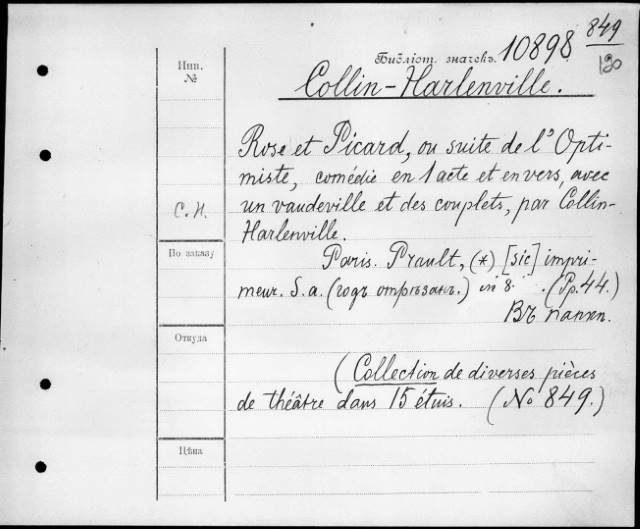 849
180
Инв.
№
Библіот. значекъ. 10898
Collin-Harlenville.
Rose et Picard, ou suite de l'Opti-
miste, comédie en 1 acte et en vers, avec
C. H.
un vaudeville et des couplets, par Collin-
Harlenville.
По заказу
Paris. Prault, (*) [sic] impri-
meur. S. a. (годъ отрѣзанъ.) in 8. (Pp. 44.)
Въ папкѣ.
Откуда
(Collection de diverses pièces
de théâtre dans 15 étuis. (No 849.)
Цѣна